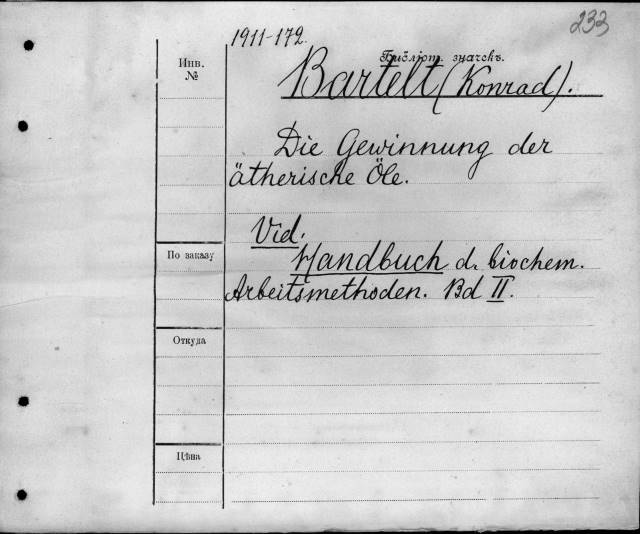 233
1911-172.
Инв.
№
Библіот. значекъ.
Bartelt (Konrad).
Die Gewinnung der
ätherische Öle.
Vid.
По заказу
Handbuch d. biochem.
Arbeitsmethoden. Bd II.
Откуда
Цѣна